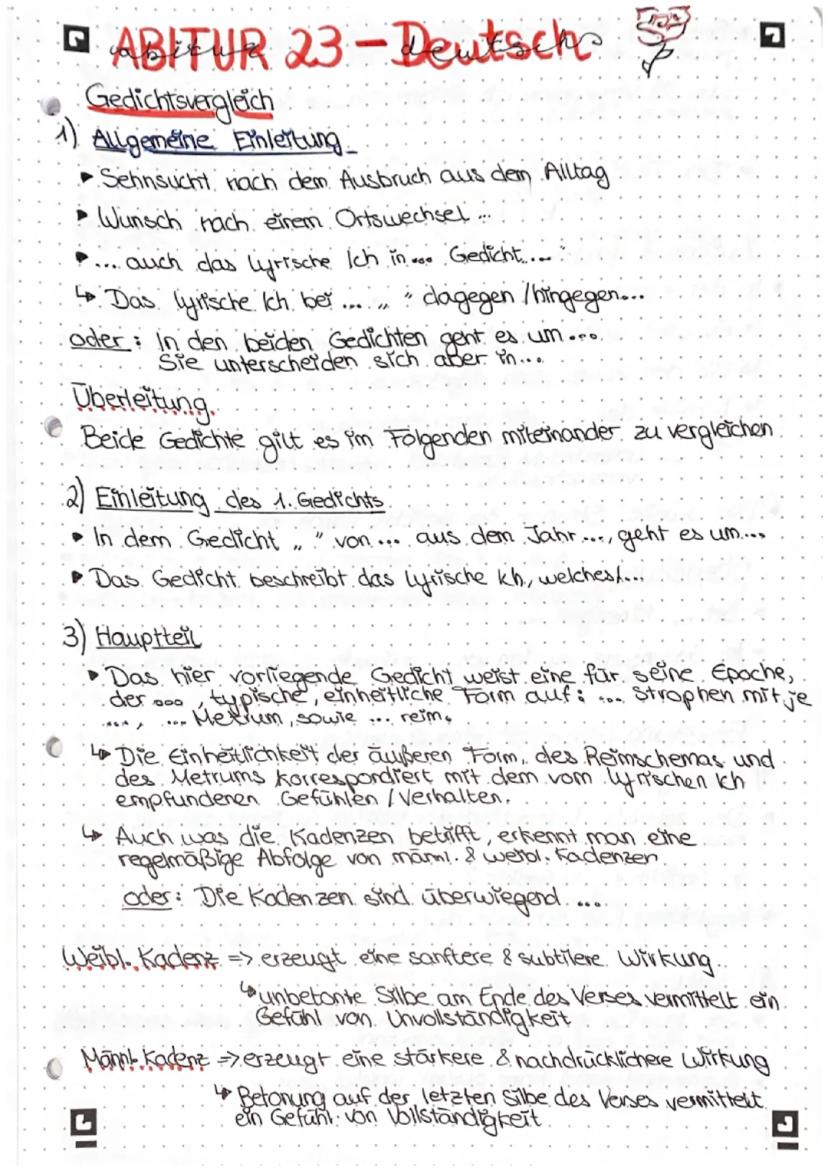 ABITUR 23 - Deutsch
abitur deutsch
Gedichtsvergleich
1) Allgemeine Einleitung
▸ Sehnsucht nach dem Ausbruch aus dem Alltag
▸ Wunsch nach einem Ortswechsel ...
▸ ... auch das lyrische Ich in ... Gedicht ... "
↳ Das lyrische Ich bei ... „ " dagegen / hingegen...
oder: In den beiden Gedichten geht es um ....
Sie unterscheiden sich aber in...
Überleitung
Beide Gedichte gilt es im Folgenden miteinander zu vergleichen
2) Einleitung des 1. Gedichts
▸ In dem Gedicht „ " von ... aus dem Jahr ..., geht es um....
▸ Das Gedicht beschreibt das lyrische Ich, welches/...
3) Hauptteil
▸ Das hier vorliegende Gedicht weist eine für seine Epoche,
der ..., typische, einheitliche Form auf: ... Strophen mit je
..., ... Metrum, sowie ... reim.
↳ Die Einheitlichkeit der äußeren Form, des Reimschemas und
des Metrums korrespondiert mit dem vom lyrischen Ich
empfundenen Gefühlen / Verhalten.
↳ Auch was die Kadenzen betrifft, erkennt man eine
regelmäßige Abfolge von männl. & weibl. Kadenzen
oder: Die Kadenzen sind überwiegend ...
Weibl. Kadenz => erzeugt eine sanftere & subtilere Wirkung
↳ unbetonte Silbe am Ende des Verses vermittelt ein
Gefühl von Unvollständigkeit
Männl. Kadenz => erzeugt eine stärkere & nachdrücklichere Wirkung
↳ Betonung auf der letzten Silbe des Verses vermittelt
ein Gefühl von Vollständigkeit